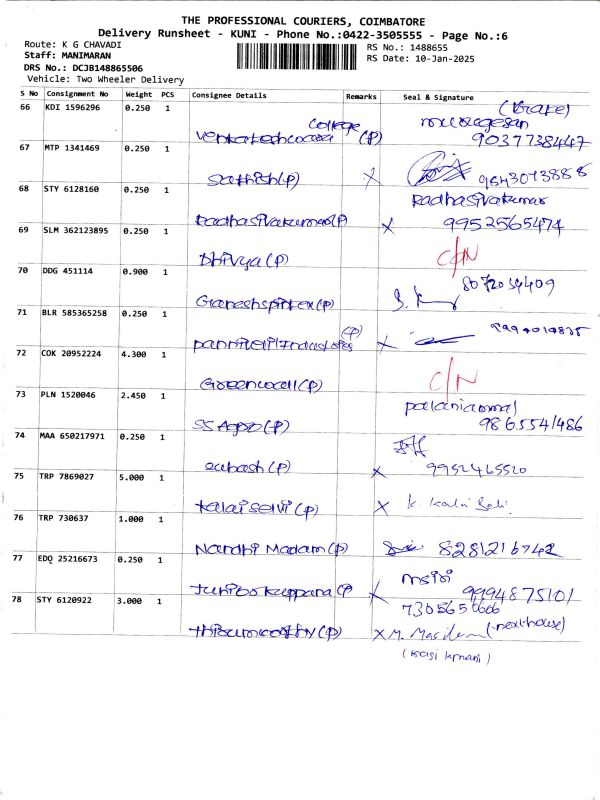 THE PROFESSIONAL COURIERS, COIMBATORE
Delivery Runsheet - KUNI - Phone No.:0422-3505555 - Page No.:6
Route: K G CHAVADI
RS No.: 1488655
Staff: MANIMARAN
RS Date: 10-Jan-2025
DRS No.: DCJB148865506
Vehicle: Two Wheeler Delivery
S No Consignment No Weight PCS Consignee Details Remarks Seal & Signature
66 KDI 1596296 0.250 1
College (P) murugesan
9037738447
67 MTP 1341469 0.250 1
Sathish(P) X 9843073888
68 STY 6128160 0.250 1 Radhasivakumar
Radhasivakumar(P) X 9952565474
69 SLM 362123895 0.250 1
Dhivya(P) C/N
70 DDG 451114 0.900 1
Ganeshspintex(P) 8072034409
71 BLR 585365258 0.250 1
(P) X
72 COK 20952224 4.300 1
Greenwall(P) C/N
73 PLN 1520046 2.450 1 palaniammal
SS Agro(P) 9865541486
74 MAA 650217971 0.250 1
(P) X 9952465520
75 TRP 7869027 5.000 1
Kalaiselvi(P) X K. Kalai Selvi
76 TRP 730637 1.000 1
Nandhi Madam(P) 8281216742
77 EDQ 25216673 0.250 1
(P X 9994875101
78 STY 6120922 3.000 1 7305650666
(P) X M. (next house)